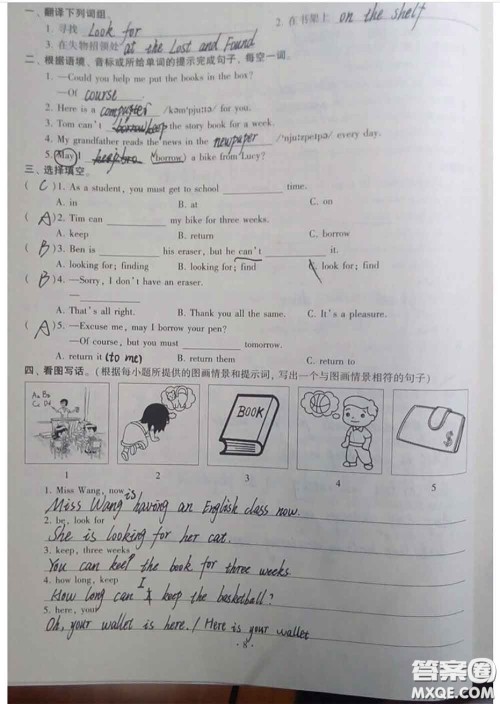 一、翻译下列词组。
1. 寻找 Look for 2. 在书架上 on the shelf
3. 在失物招领处 at the Lost and Found
二、根据语境、音标或所给单词的提示完成句子，每空一词。
1. —Could you help me put the books in the box?
—Of course.
2. Here is a computer /kəm'pjuːtə/ for you.
3. Tom can't keep the story book for a week.
4. My grandfather reads the news in the newpaper /'njuːzpeɪpə/ every day.
5. May I (borrow) a bike from Lucy?
三、选择填空。
( C ) 1. As a student, you must get to school ________ time.
A. in B. at C. on
( A ) 2. Tim can ________ my bike for three weeks.
A. keep B. return C. borrow
( B ) 3. Ben is ________ his eraser, but he can't ________ it.
A. looking for; finding B. looking for; find C. look for; find
( B ) 4. —Sorry, I don't have an eraser.
—________
A. That's all right. B. Thank you all the same. C. It's a pleasure.
( A ) 5. —Excuse me, may I borrow your pen?
—Of course, but you must ________ tomorrow.
A. return it (to me) B. return them C. return to
四、看图写话。(根据每小题所提供的图画情景和提示词，写出一个与图画情景相符的句子)
Aa Bb
Cc Dd
BOOK
$
1 2 3 4 5
1. Miss Wang, now
Miss Wang is having an English class now.
2. be, look for
She is looking for her cat.
3. keep, three weeks
You can keep the book for three weeks
4. how long, keep
How long can I keep the basketball?
5. here, your
Oh, your wallet is here. / Here is your wallet
· 8 ·
答案圈
MXQE.COM